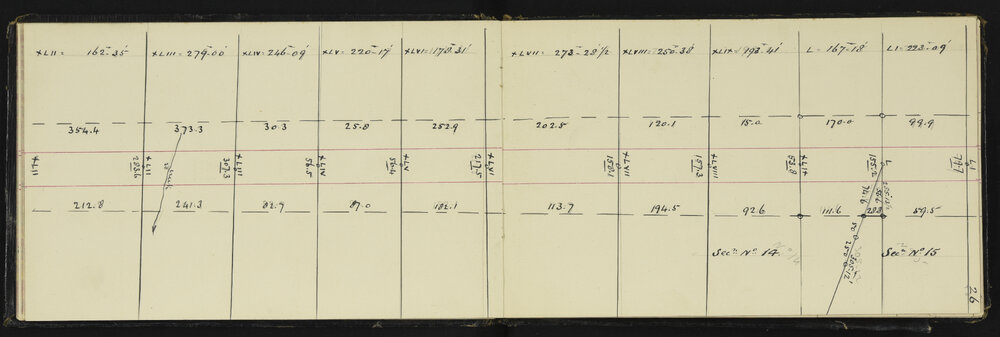 XLII = 162°-35' XLIII = 279°-00' XLIV = 246-09' XLV = 220°-17' XLVI = 178°-31' XLVII = 273°-28½ XLVIII = 250°-38' XLIX = 193°-41' L = 167°-18' LI = 223°-09'
354.4 373.3 30.3 25.8 252.9 202.8 120.1 15.0 170.0 99.9
XLII 283.6 XLIII 307.3 XLIV 56.5 XLV 55.4 XLVI 217.5 XLVII 158.1 XLVIII 157.3 XLIX 53.8 L 155.2 LI 79.7
212.8 241.3 82.9 87.0 182.1 113.7 194.5 92.6 111.6 28.8 59.5
74.6 55.6
50.0
250.0
305°12'
Secn No 14 Secn No 15
26